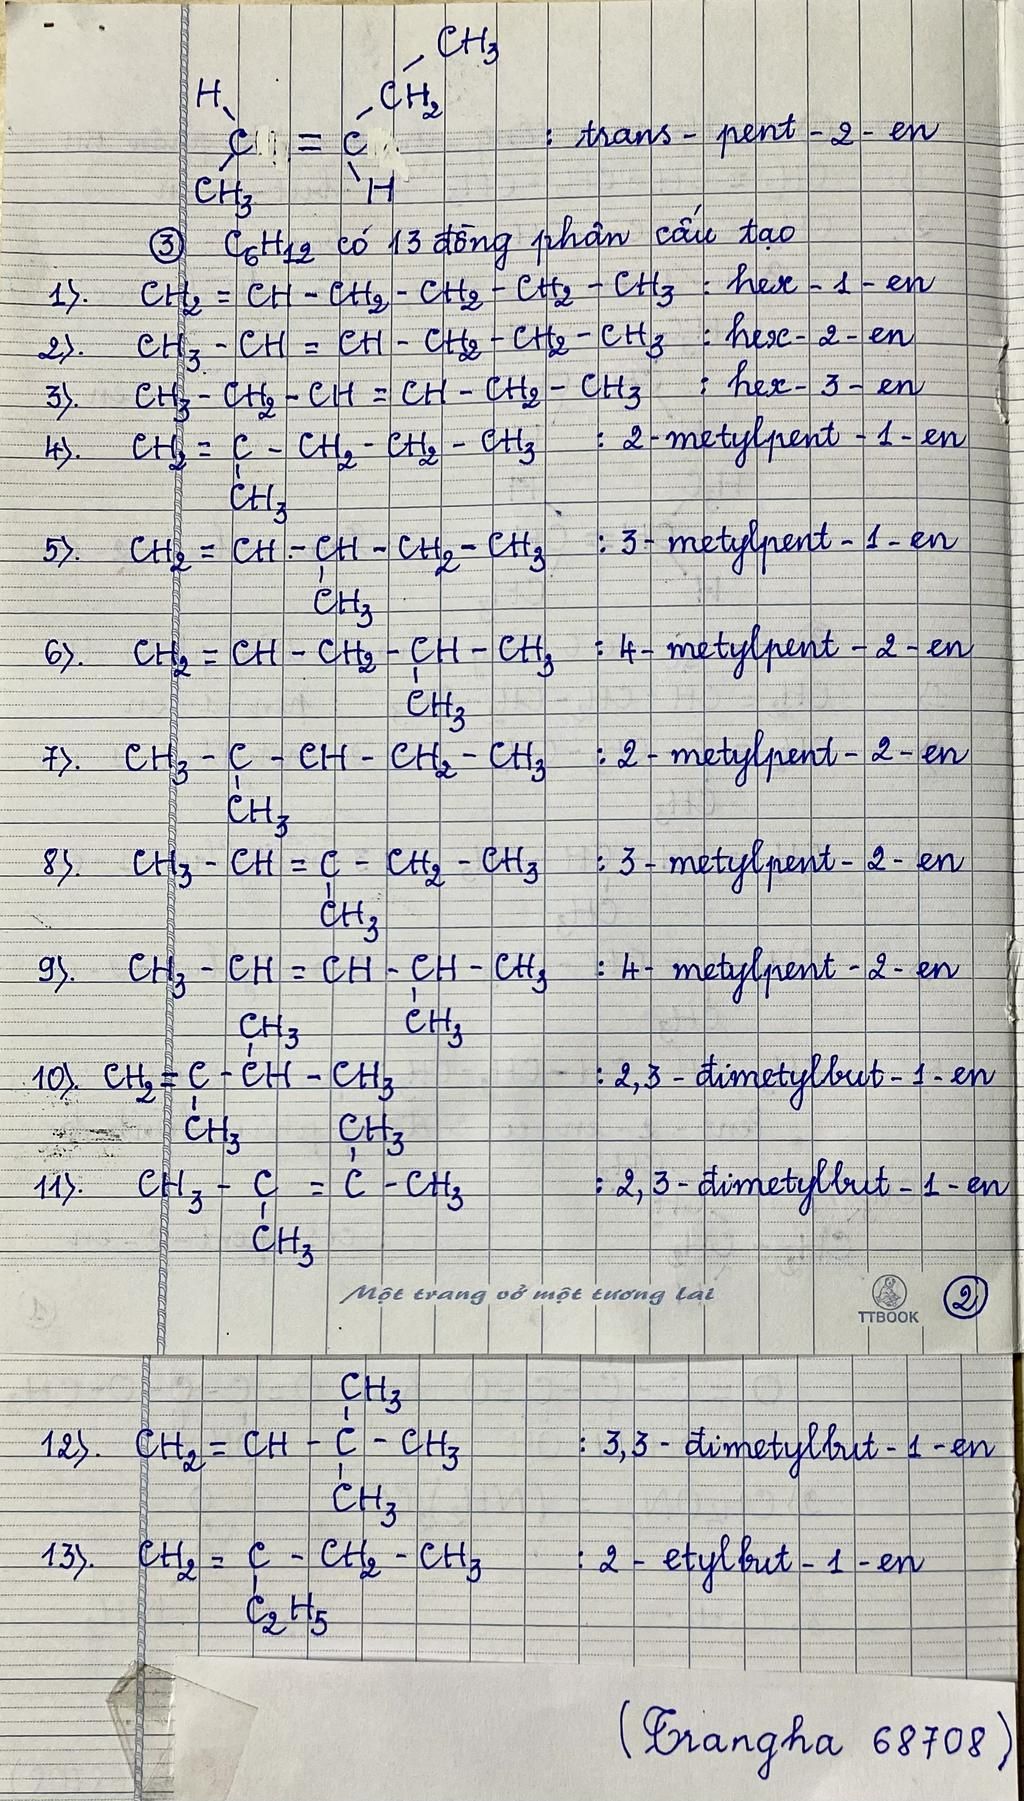 CH3
H CH2
C = C : trans - pent - 2 - en
CH3 H
③ C6H12 có 13 đồng phân cấu tạo
1). CH2 = CH - CH2 - CH2 - CH2 - CH3 : hex - 1 - en
2). CH3 - CH = CH - CH2 - CH2 - CH3 : hex - 2 - en
3). CH3 - CH2 - CH = CH - CH2 - CH3 : hex - 3 - en
4). CH2 = C - CH2 - CH2 - CH3 : 2 - metylpent - 1 - en
CH3
5). CH2 = CH - CH - CH2 - CH3 : 3 - metylpent - 1 - en
CH3
6). CH2 = CH - CH2 - CH - CH3 : 4 - metylpent - 2 - en
CH3
7). CH3 - C - CH - CH2 - CH3 : 2 - metylpent - 2 - en
CH3
8). CH3 - CH = C - CH2 - CH3 : 3 - metylpent - 2 - en
CH3
9). CH3 - CH = CH - CH - CH3 : 4 - metylpent - 2 - en
CH3 CH3
10). CH2 = C - CH - CH3 : 2,3 - đimetylbut - 1 - en
CH3 CH3
11). CH3 - C = C - CH3 : 2,3 - đimetylbut - 1 - en
CH3
Một trang vở một tương lai TTBOOK ②
CH3
12). CH2 = CH - C - CH3 : 3,3 - đimetylbut - 1 - en
CH3
13). CH2 = C - CH2 - CH3 : 2 - etylbut - 1 - en
C2H5
(Trangha 68708)